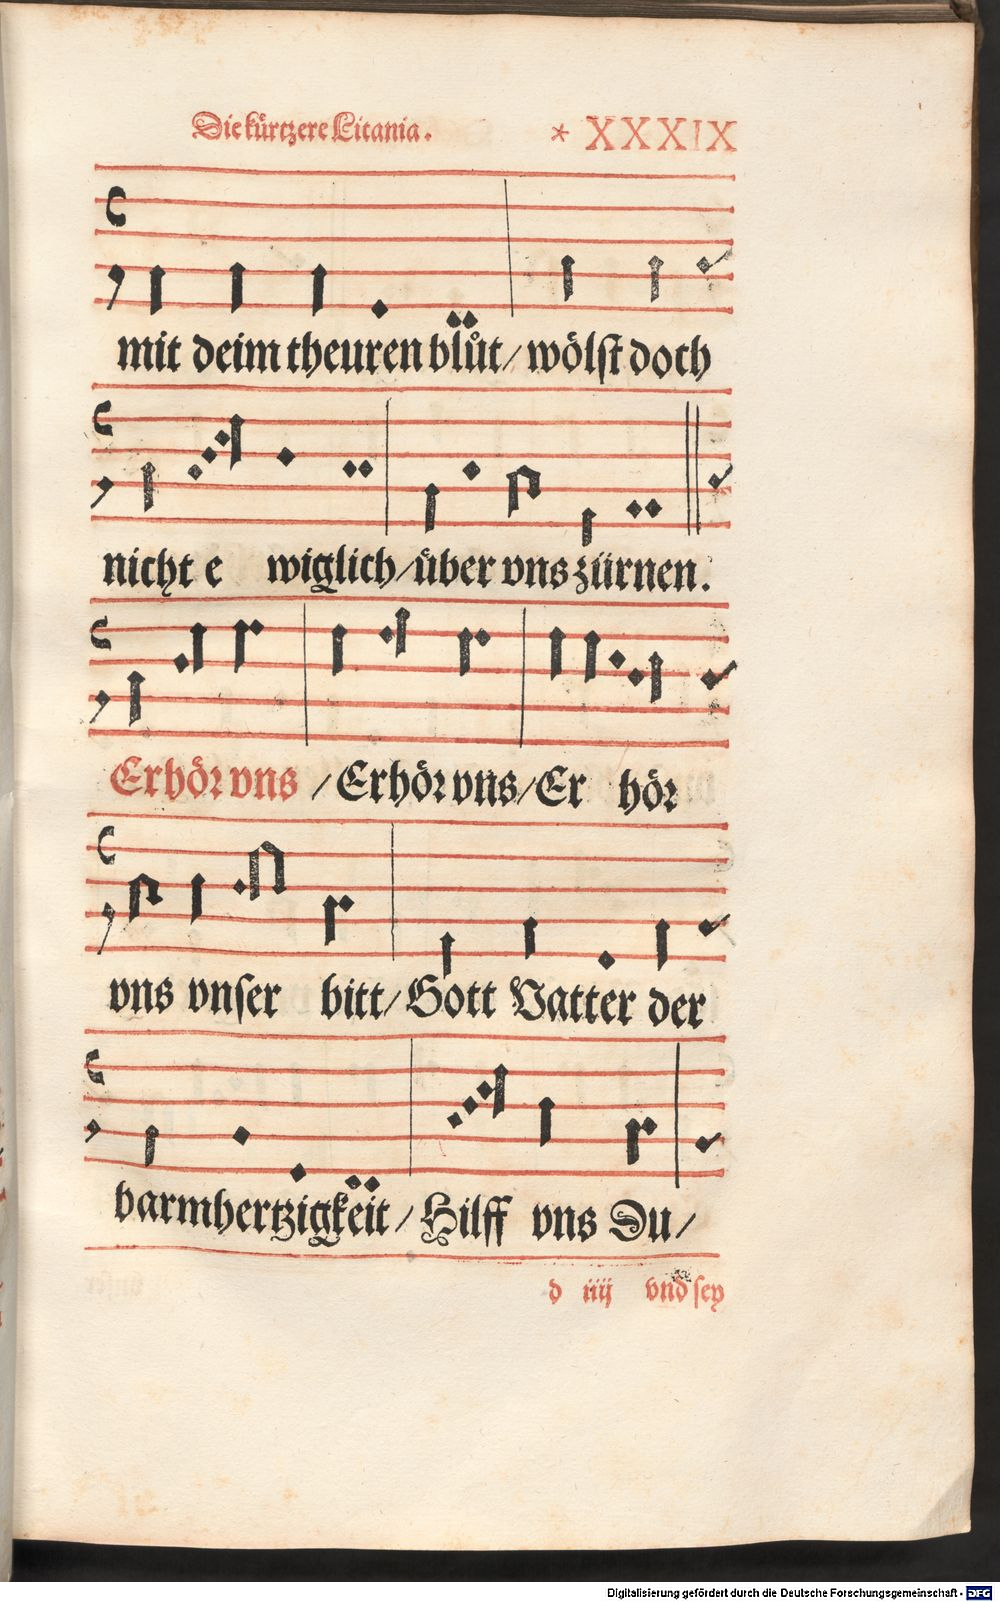 Die kürtzere Litania. * XXXIX
mit deim theuren blůt/ wölst doch
nicht e wiglich/ über vns zürnen.
Erhör vns / Erhör vns/ Er hör
vns vnser bitt/ Gott Vatter der
barmhertzigkeit / Hilff vns Du/
d iiij vnd sey
Digitalisierung gefördert durch die Deutsche Forschungsgemeinschaft - DFG